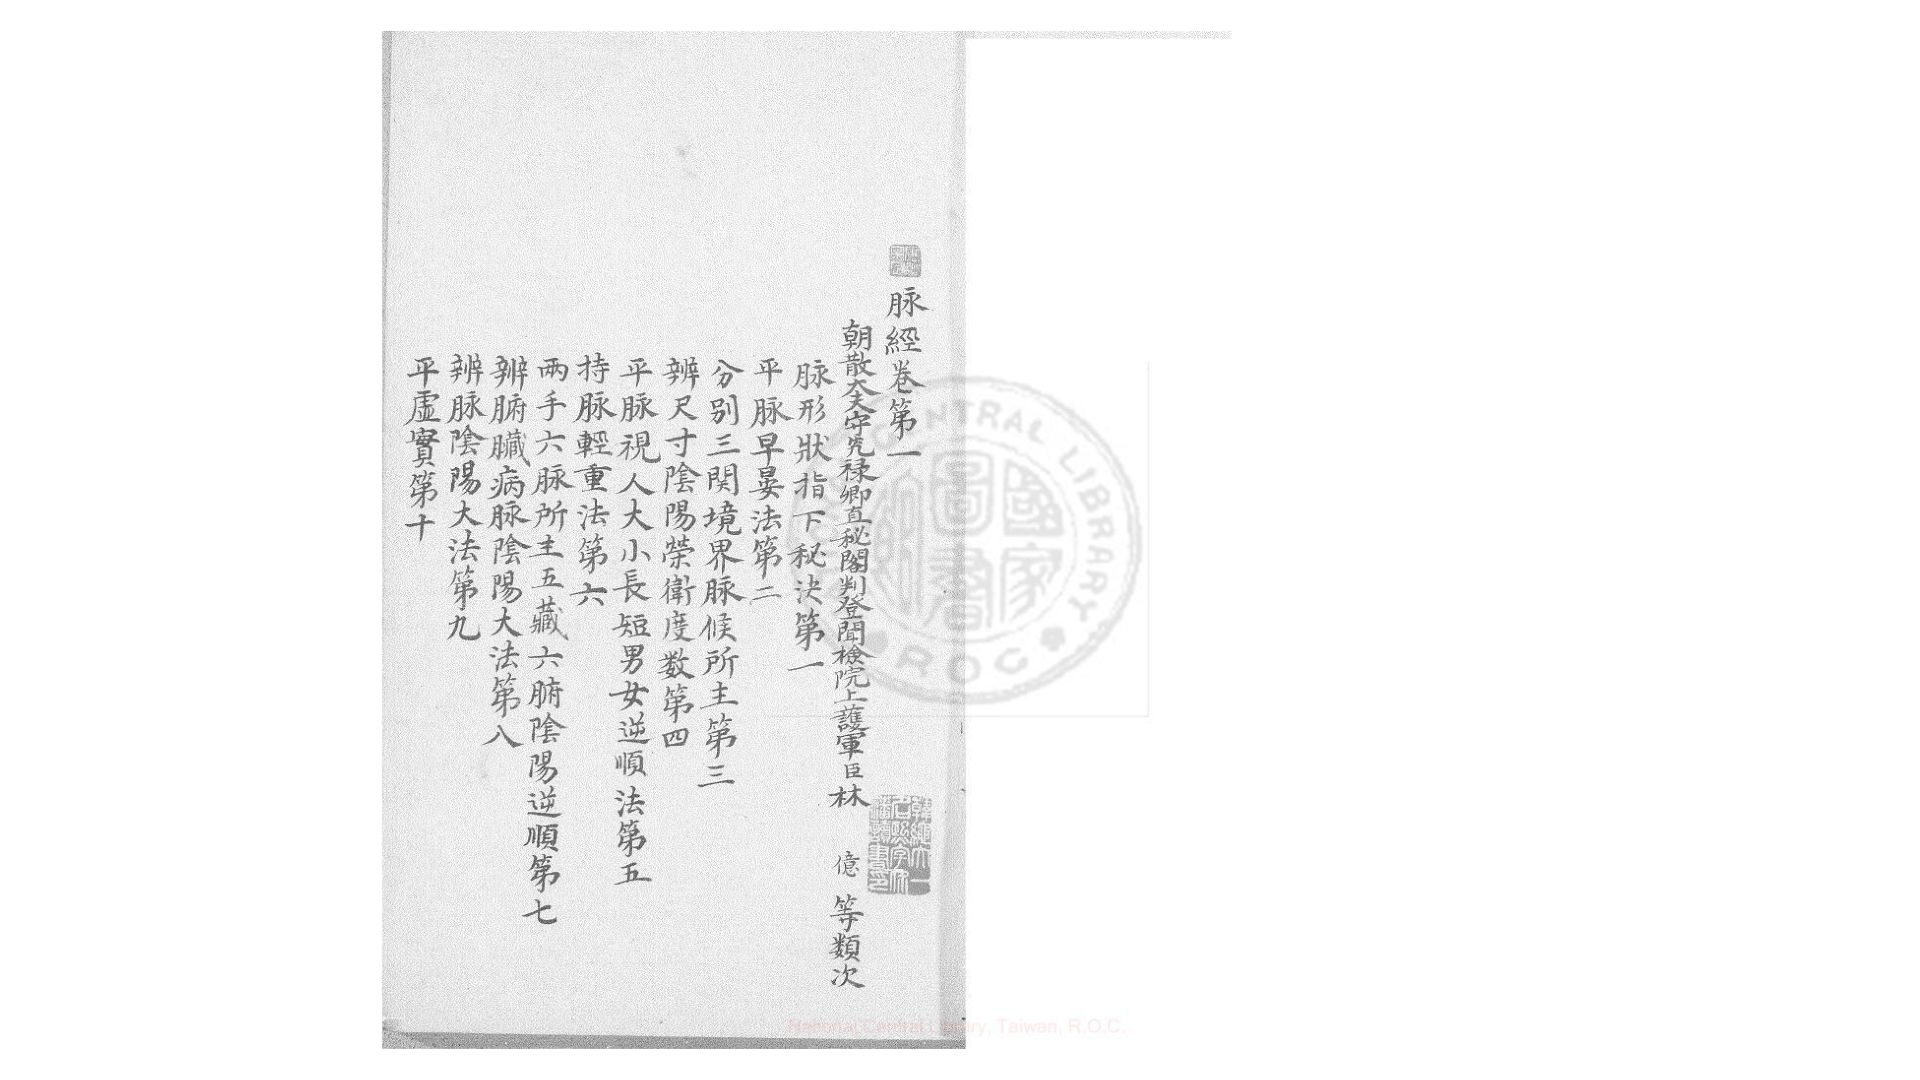 脉經卷第一
朝散大夫守光禄卿直秘閣判登聞檢院上護軍臣林 億 等類次
脉形狀指下秘決第一
平脉早晏法第二
分别三関境界脉候所主第三
辨尺寸陰陽荣衛度数第四
平脉視人大小長短男女逆順法第五
持脉輕重法第六
兩手六脉所主五藏六腑陰陽逆順第七
辨腑臟病脉陰陽大法第八
辨脉陰陽大法第九
平虛實第十
國家圖書館
CENTRAL LIBRARY
ROC
National Central Library, Taiwan, R.O.C.